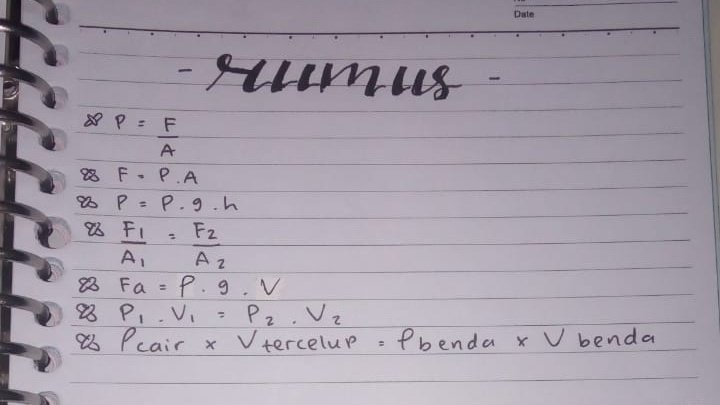 Date
- rumus -
P = F
A
F = P . A
P = ρ . g . h
F1 = F2
A1 A2
Fa = ρ . g . V
P1 . V1 = P2 . V2
ρcair x Vtercelup = ρbenda x V benda